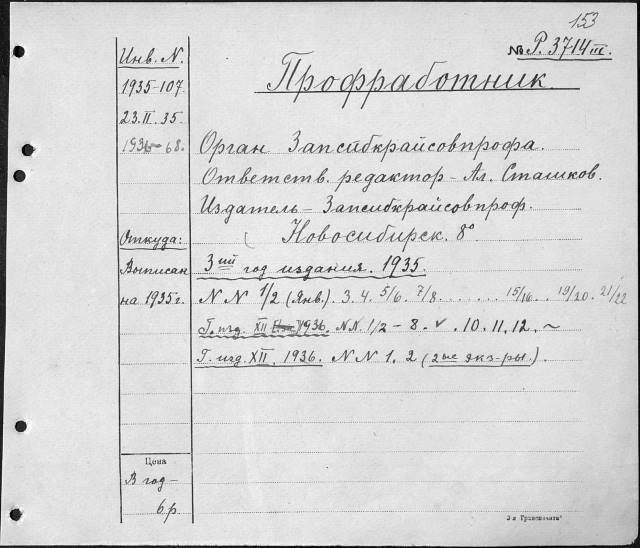 153
№ Р. 3714 III.
Профработник.
Инв. N.
1935-107
23.II.35.
1936-68.
Орган Запсибкрайсовпрофа.
Ответств. редактор - Ал. Сташков.
Издатель - Запсибкрайсовпроф.
Новосибирск. 8°
Откуда:
Выписан
на 1935 г.
3ий год издания. 1935.
N N 1/2 (Янв.) 3. 4. 5/6. 7/8 . . . . . . . 15/16 . . 19/20. 21/22
Г. изд. XII 1936. N.N. 1/2 - 8. ✓ . 10. 11. 12. ~
Г. изд. XII. 1936. N N 1. 2 (2ые экз-ры.).
Цена
В год -
6 р.